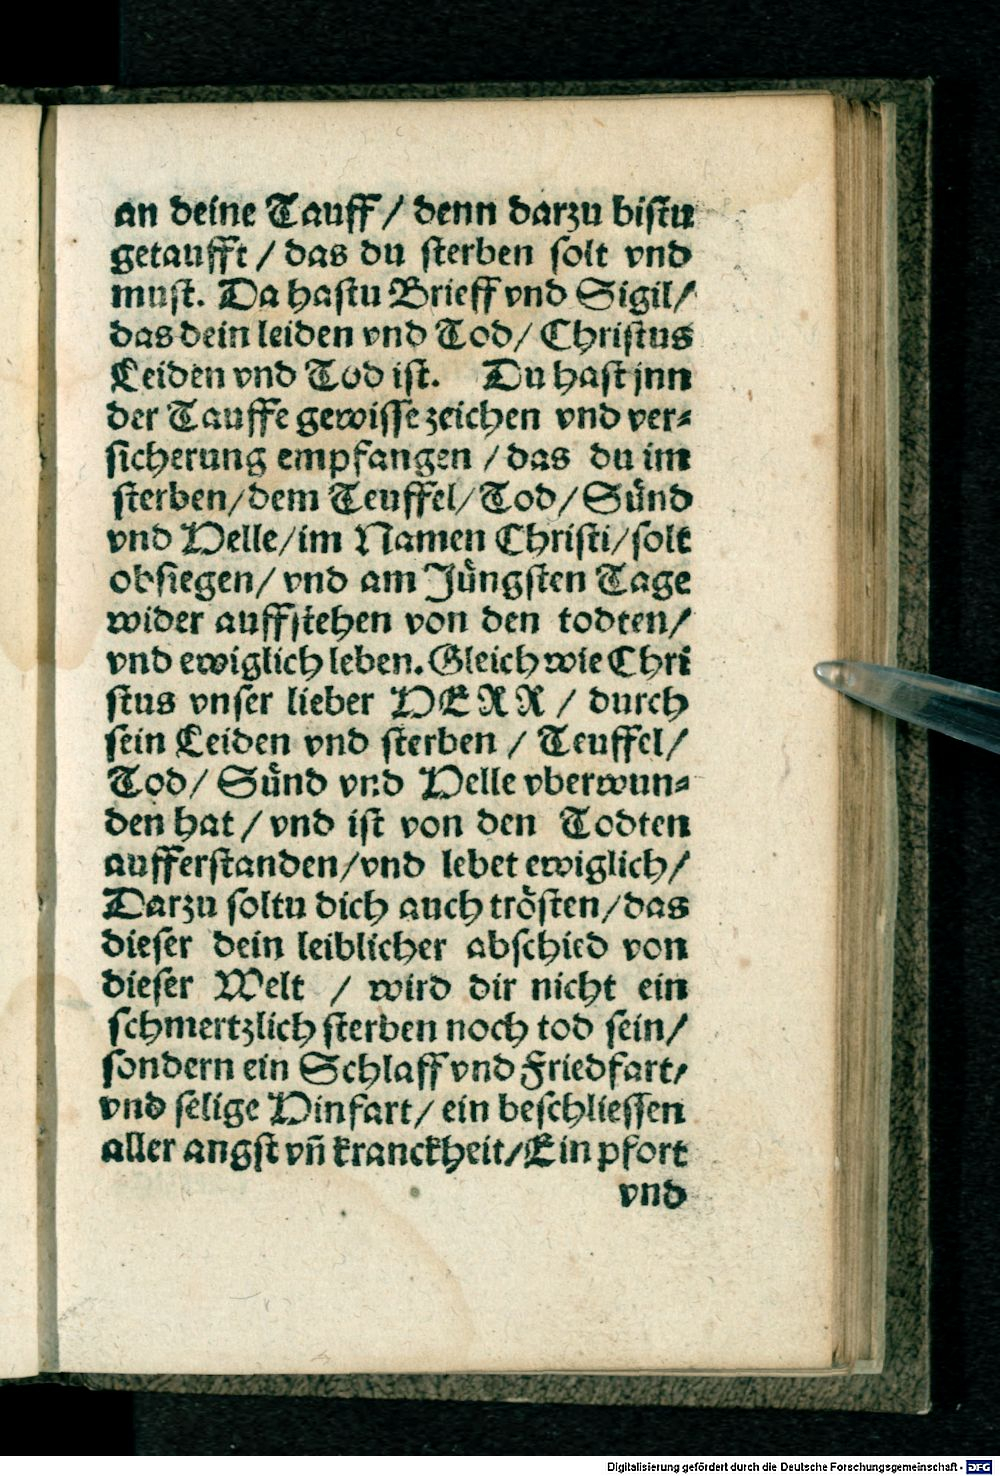 an deine Tauff / denn darzu bistu
getaufft / das du sterben solt vnd
must. Da hastu Brieff vnd Sigil/
das dein leiden vnd Tod/ Christus
Leiden vnd Tod ist. Du hast jnn
der Tauffe gewisse zeichen vnd ver-
sicherung empfangen / das du im
sterben/dem Teuffel/Tod/Sünd
vnd Helle/im Namen Christi/solt
obsiegen/ vnd am Jüngsten Tage
wider auffstehen von den todten/
vnd ewiglich leben. Gleich wie Chri
stus vnser lieber HERR / durch
sein Leiden vnd sterben / Teuffel/
Tod/ Sünd vnd Helle vberwun-
den hat / vnd ist von den Todten
aufferstanden/vnd lebet ewiglich/
Darzu soltu dich auch trösten/das
dieser dein leiblicher abschied von
dieser Welt / wird dir nicht ein
schmertzlich sterben noch tod sein/
sondern ein Schlaff vnd Friedfart/
vnd selige Hinfart/ ein beschliessen
aller angst vñ kranckheit/Ein pfort
vnd
Digitalisierung gefördert durch die Deutsche Forschungsgemeinschaft - DFG